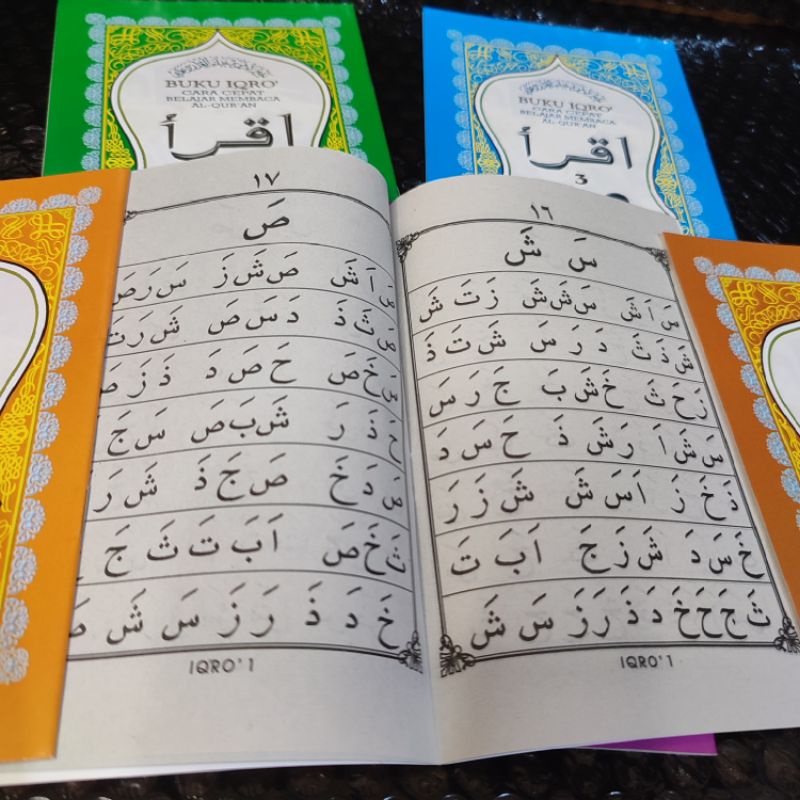 BUKU IQRO'
CARA CEPAT
BELAJAR MEMBACA
AL-QUR'AN
اقرأ
BUKU IQRO'
CARA CEPAT
BELAJAR MEMBACA
AL-QUR'AN
اقرأ
3
١٦
سَ شَ
سَ اَ شَ سَ شَ شَ زَ تَ شَ
شَ ذَ ثَ دَ رَ سَ شَ تَ ذَ
رَ حَ ثَ خَ شَ بَ جَ رَ سَ
سَ شَ اَ رَ شَ ذَ حَ سَ دَ
ذَ خَ زَ اَ سَ شَ شَ زَ رَ
خَ سَ دَ شَ زَ جَ اَ بَ تَ
ثَ جَ حَ خَ دَ ذَ رَ زَ سَ شَ
IQRO' 1
١٧
صَ
صَ اَ شَ صَ شَ زَ سَ رَ صَ
صَ ثَ ذَ دَ سَ صَ شَ رَ تَ
خَ صَ حَ صَ دَ ذَ زَ صَ
ذَ رَ شَ بَ صَ سَ جَ
صَ دَ خَ صَ جَ ذَ شَ رَ
ثَ خَ صَ اَ بَ تَ ثَ جَ
خَ دَ ذَ رَ زَ سَ شَ صَ
IQRO' 1